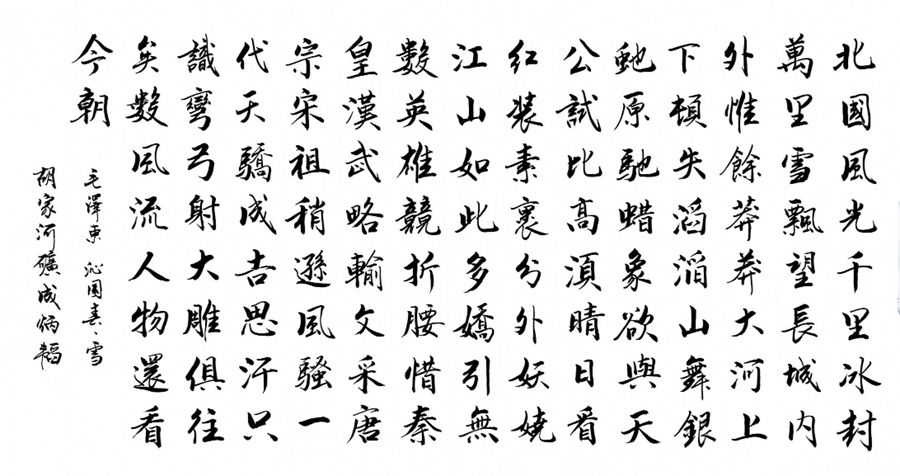 北國風光千里冰封
萬里雪飄望長城內
外惟餘莽莽大河上
下頓失滔滔山舞銀
虵原馳蜡象欲與天
公試比高須晴日看
紅裝素裹分外妖嬈
江山如此多嬌引無
數英雄競折腰惜秦
皇漢武略輸文采唐
宗宋祖稍遜風騷一
代天驕成吉思汗只
識彎弓射大雕俱往
矣數風流人物還看
今朝
毛澤東 沁園春·雪
胡家河礦成炳